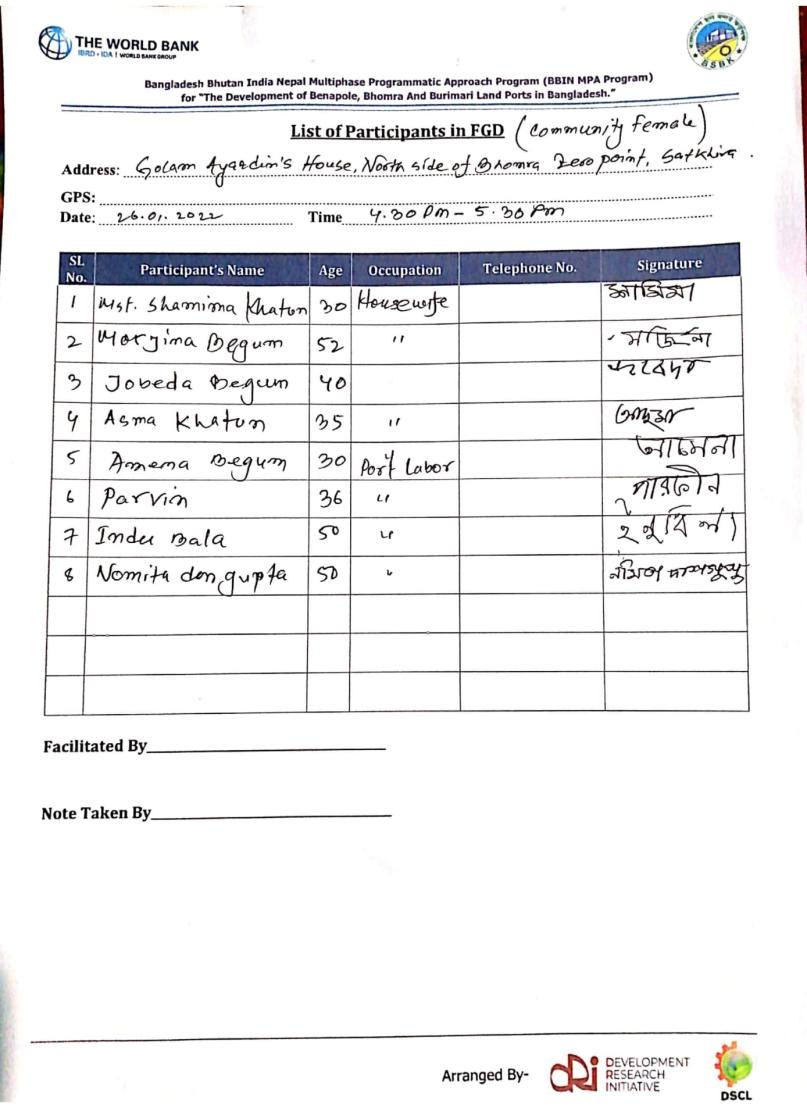 THE WORLD BANK
IBRD • IDA | WORLD BANK GROUP
BSBK
Bangladesh Bhutan India Nepal Multiphase Programmatic Approach Program (BBIN MPA Program)
for "The Development of Benapole, Bhomra And Burimari Land Ports in Bangladesh."
List of Participants in FGD (Community Female)
Address: Golam Ayardin's House, North side of Bhomra Zero point, Satkhira.
GPS:
Date: 26.01.2022 Time 4.30 Pm – 5.30 Pm
SL No. Participant's Name Age Occupation Telephone No. Signature
1 Mst. Shamima Khatun 30 Housewife
2 Morjina Begum 52 " মর্জিনা
3 Jobeda Begum 40
4 Asma Khatun 35 "
5 Amena Begum 30 Port Labor আমেনা
6 Parvin 36 " পারভীন
7 Indu Bala 50 "
8 Nomita den gupta 50 "
Facilitated By
Note Taken By
Arranged By-
DRi DEVELOPMENT
RESEARCH
INITIATIVE
DSCL